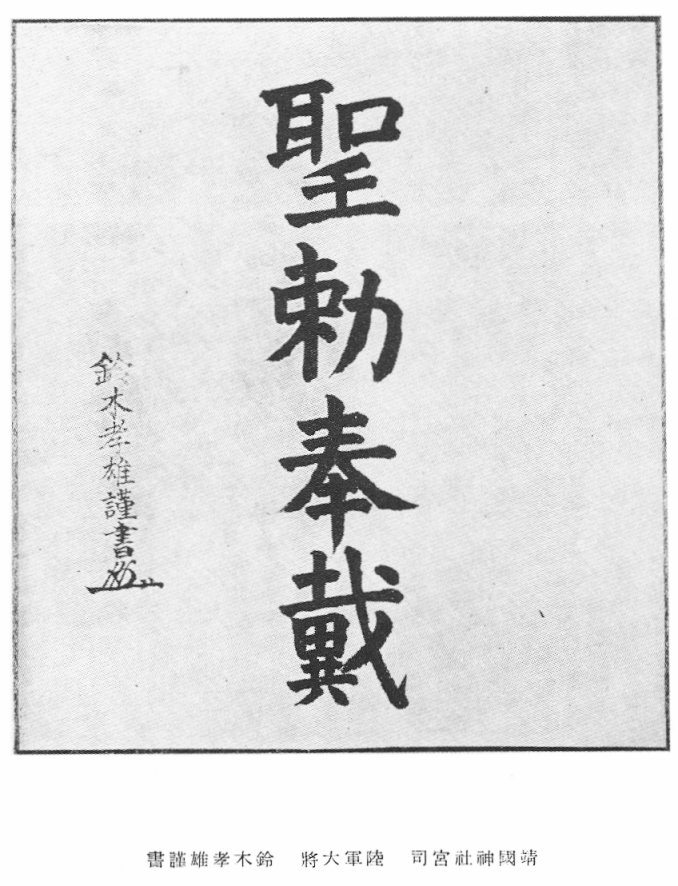 聖勅奉戴
鈴木孝雄謹書
靖國神社宮司　陸軍大將　鈴木孝雄謹書